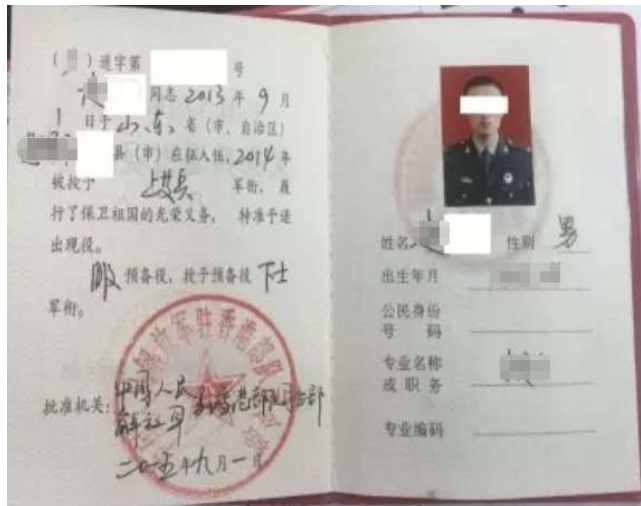 ( ) 退字第 号
同志 2013 年 9 月
1 日于 山东 省 (市、自治区)
县 (市) 应征入伍, 2014 年
被授予 上等兵 军衔, 履
行了保卫祖国的光荣义务, 特准予退
出现役。
服 预备役, 授予预备役 下士
军衔。
批准机关: 中国人民
解放军驻香港部队司令部
二〇一五年九月一日
解放军驻香港部队
姓名 性别 男
出生年月
公民身份
号 码
专业名称
或 职 务
专业编码